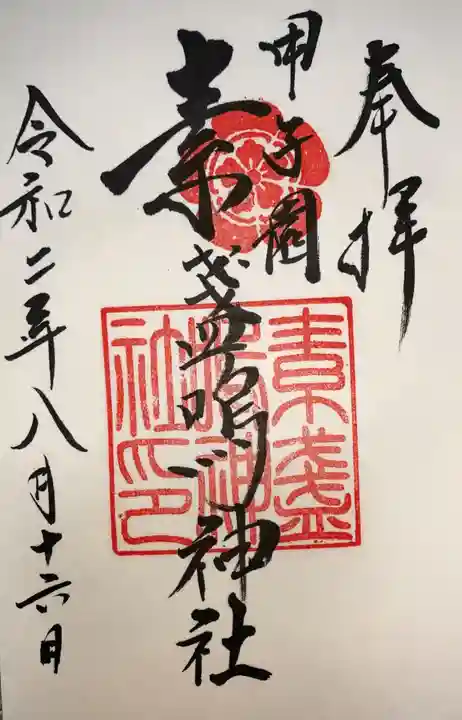 奉拝
甲子園
素盞嗚神社
素盞嗚神社印
令和二年八月十六日